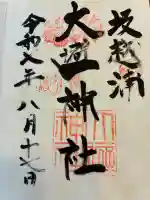 坂越浦
大避神社
令和八年八月十七日